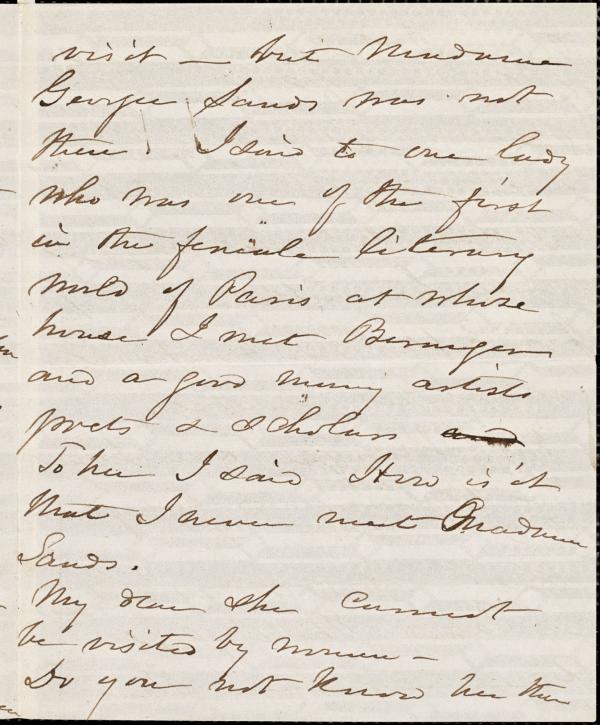 visit – but Madame
George Sands was not
there. I said to one lady
who was one of the first
in the female literary
world of Paris at whose
house I met Beranger
and a good many artists
poets & scholars and
To her I said How is it
that I never meet Madame
Sands.
My dear she cannot
be visited by women –
Do you not know her then